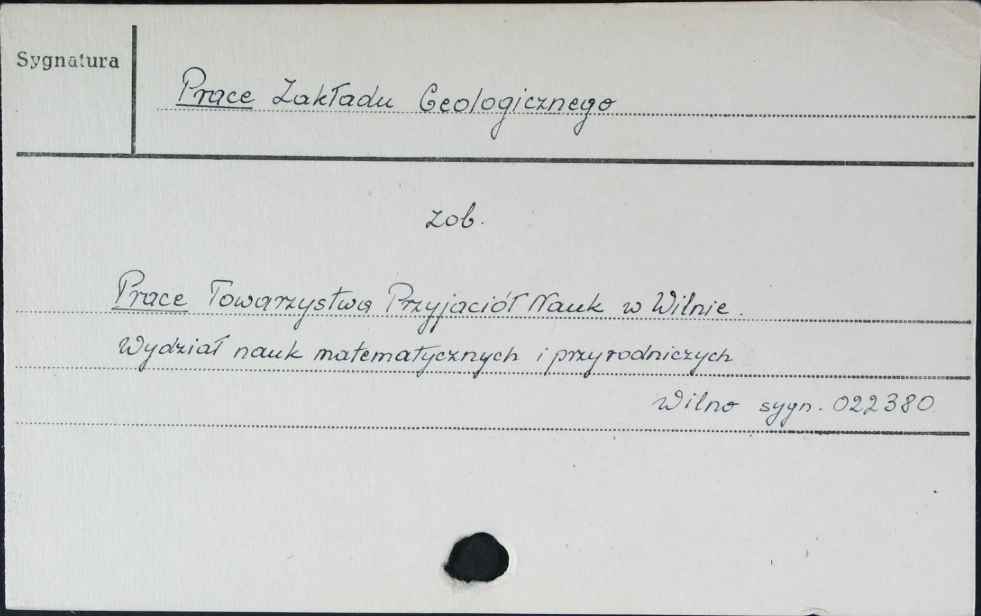 Sygnatura
Prace Zakładu Geologicznego
zob.
Prace Towarzystwa Przyjaciół Nauk w Wilnie.
Wydział nauk matematycznych i przyrodniczych
Wilno sygn. 022380